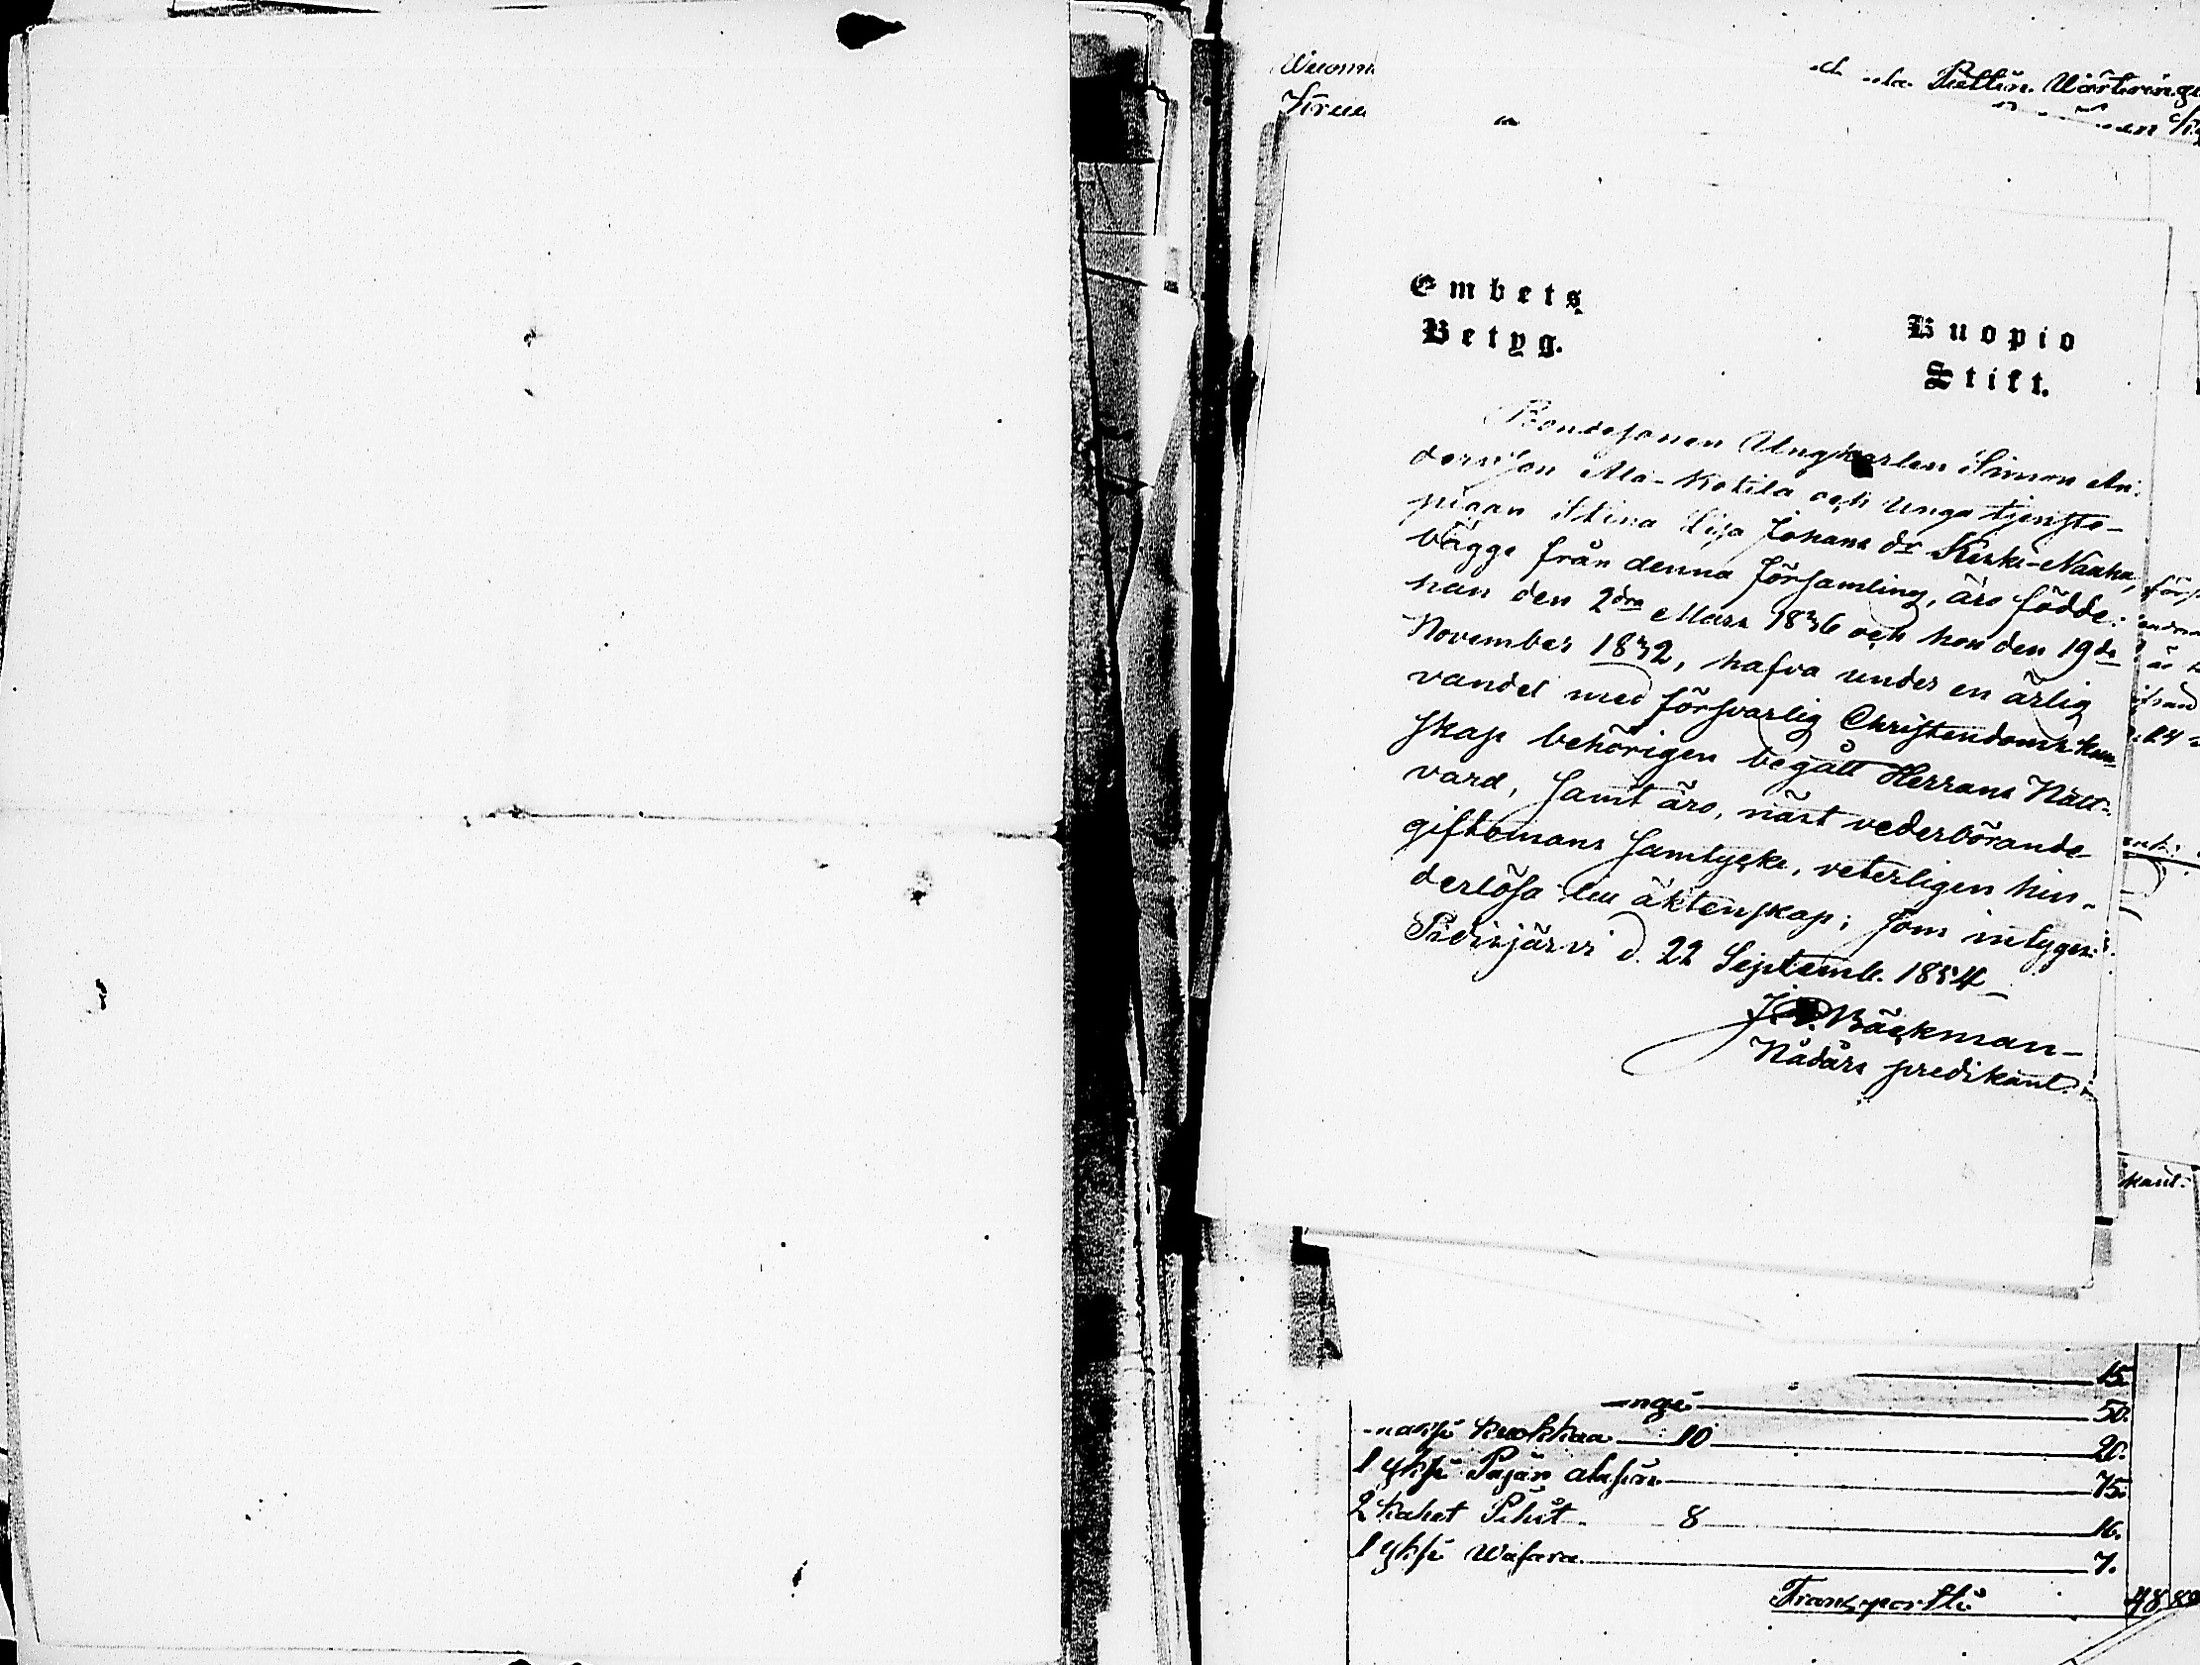 Embets
Betyg.
Kuopio
Stift.
Bondesonen Ungkarlen Simon An-
dersson Ala-Kotila och Unga tjenste-
pigan Stina Lisa Johans dr Keski-Naaha,
bägge från denna församling, äro födde:
han den 2dra Mars 1836 och hon den 19de
November 1832, hafva under en ärlig
vandel med försvarlig Christendoms kun-
skap behörigen begått Herrans Natt-
vard, samt äro, näst vederbörande
giftomans samtycke, veterligen hin-
derlösa till äktenskap; som intygar.
Pidisjärvi d. 22 Septemb. 1854
J. Bäckman
Nådårs predikant.
kant.
15
50.
kuokkaa 10 20.
1 yksi Pajan alasin 75.
2 kahet Pihit 8 16.
1 yksi Wasara 7.
Transportti